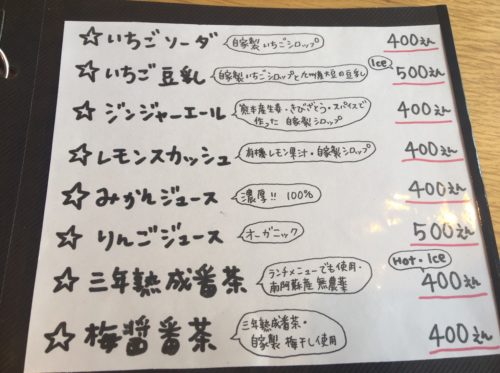 ☆ いちごソーダ 自家製いちごシロップ 400えん
☆ いちご豆乳 自家製いちごシロップと九州産大豆の豆乳 Ice 500えん
☆ ジンジャーエール 熊本産生姜・きびざとう・スパイスで
作った 自家製シロップ 400えん
☆ レモンスカッシュ 有機レモン果汁・自家製シロップ 400えん
☆ みかんジュース 濃厚!! 100% 400えん
☆ りんごジュース オーガニック 500えん
☆ 三年熟成番茶 ランチメニューでも使用・
南阿蘇産 無農薬 Hot・Ice 400えん
☆ 梅醤番茶 三年熟成番茶・
自家製 梅干し使用 400えん